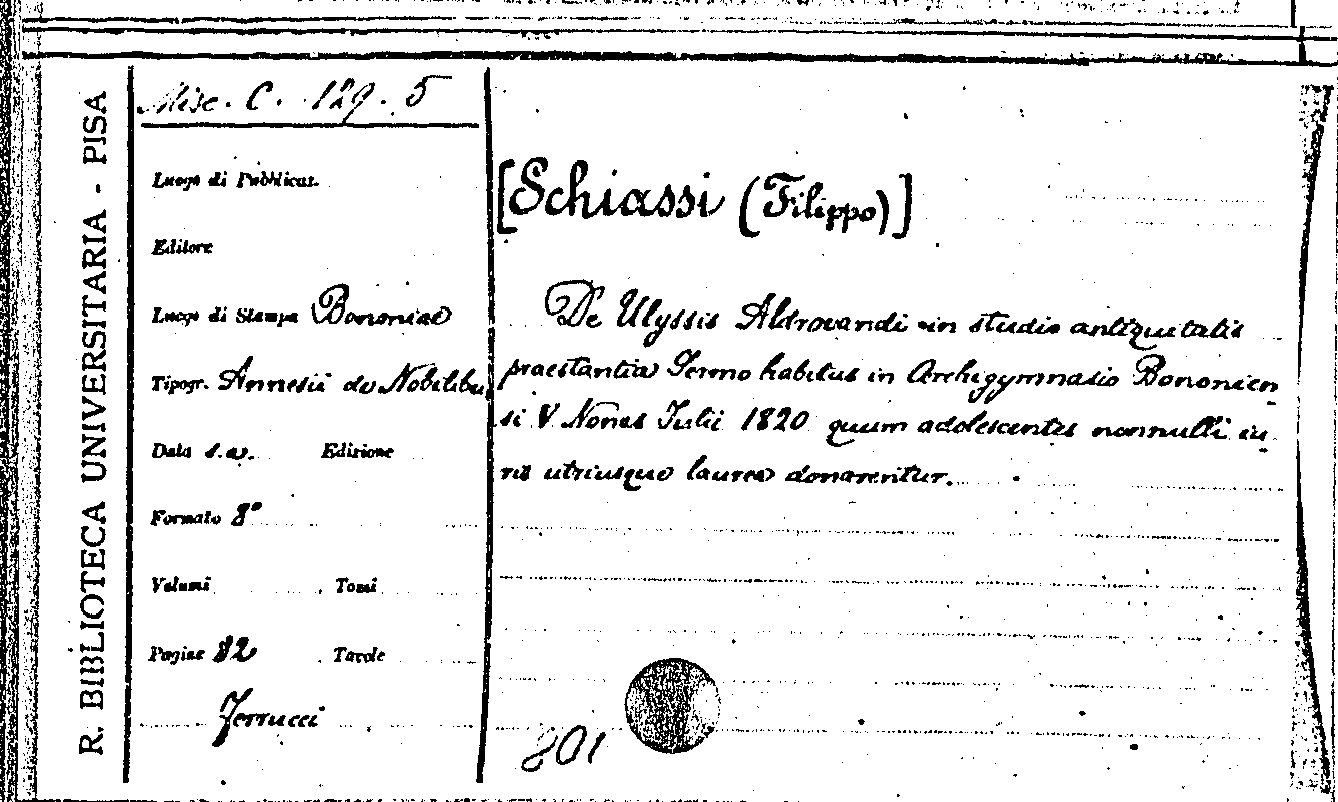 R. BIBLIOTECA UNIVERSITARIA - PISA
Misc. C. 129. 5
Luogo di Pubblicaz.
Editore
Luogo di Stampa Bononiae
Tipogr. Annesii de Nobilibus
Data s.a. Edizione
Formato 8°
Volumi Tomi
Pagine 32 Tavole
Ferrucci
[Schiassi (Filippo)]
De Ulyssis Aldrovandi in studio antiquitatis
praestantia Sermo habitus in Archigymnasio Bononien
si V Nonas Julii 1820 quum adolescentes nonnulli iu
ris utriusque laurea donarentur.
801